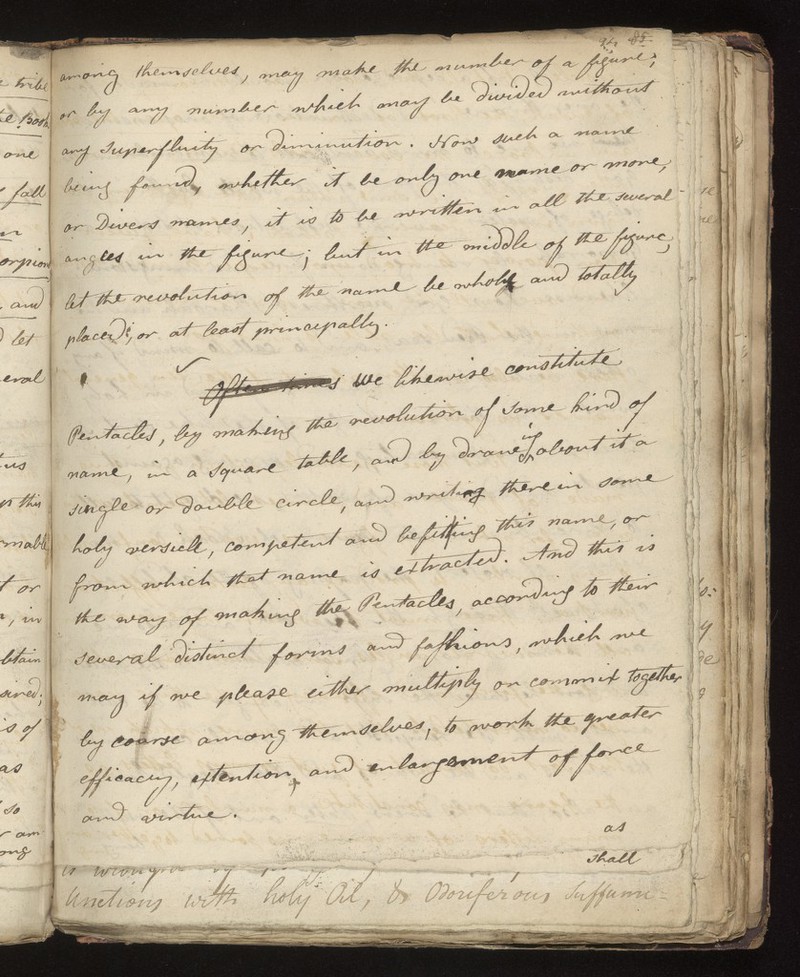 94 85
among themselves, may make the number of a figure;
or by any number which may be Divided without
any Superfluity or diminution. Now such a name
being found, whether it be only one name or more,
or Divers names, it is to be written in all the several
angles in the figure; but in the middle of the figure,
let the revolution of the name be whole and totally
placed, or at least principally.
Often times We likewise constitute
Pentacles, by making the revolution of some kind of
name, in a Square table, and by drawing about it a
single or double circle, and writing therein some
holy versicle, competent and befitting this name, or
from which that name is extracted. And this is
the way of making the Pentacles, according to their
several distinct forms and fashions, which we
may if we please either multiply or commix together
by course among themselves, to work the greater
efficacy, extention, and enlargement of force
and virtue.
as
shall
Unctions with holy Oil, & Odoriferous Suffumi=
tribe
one
fall
and
let
this
or
in
as
so